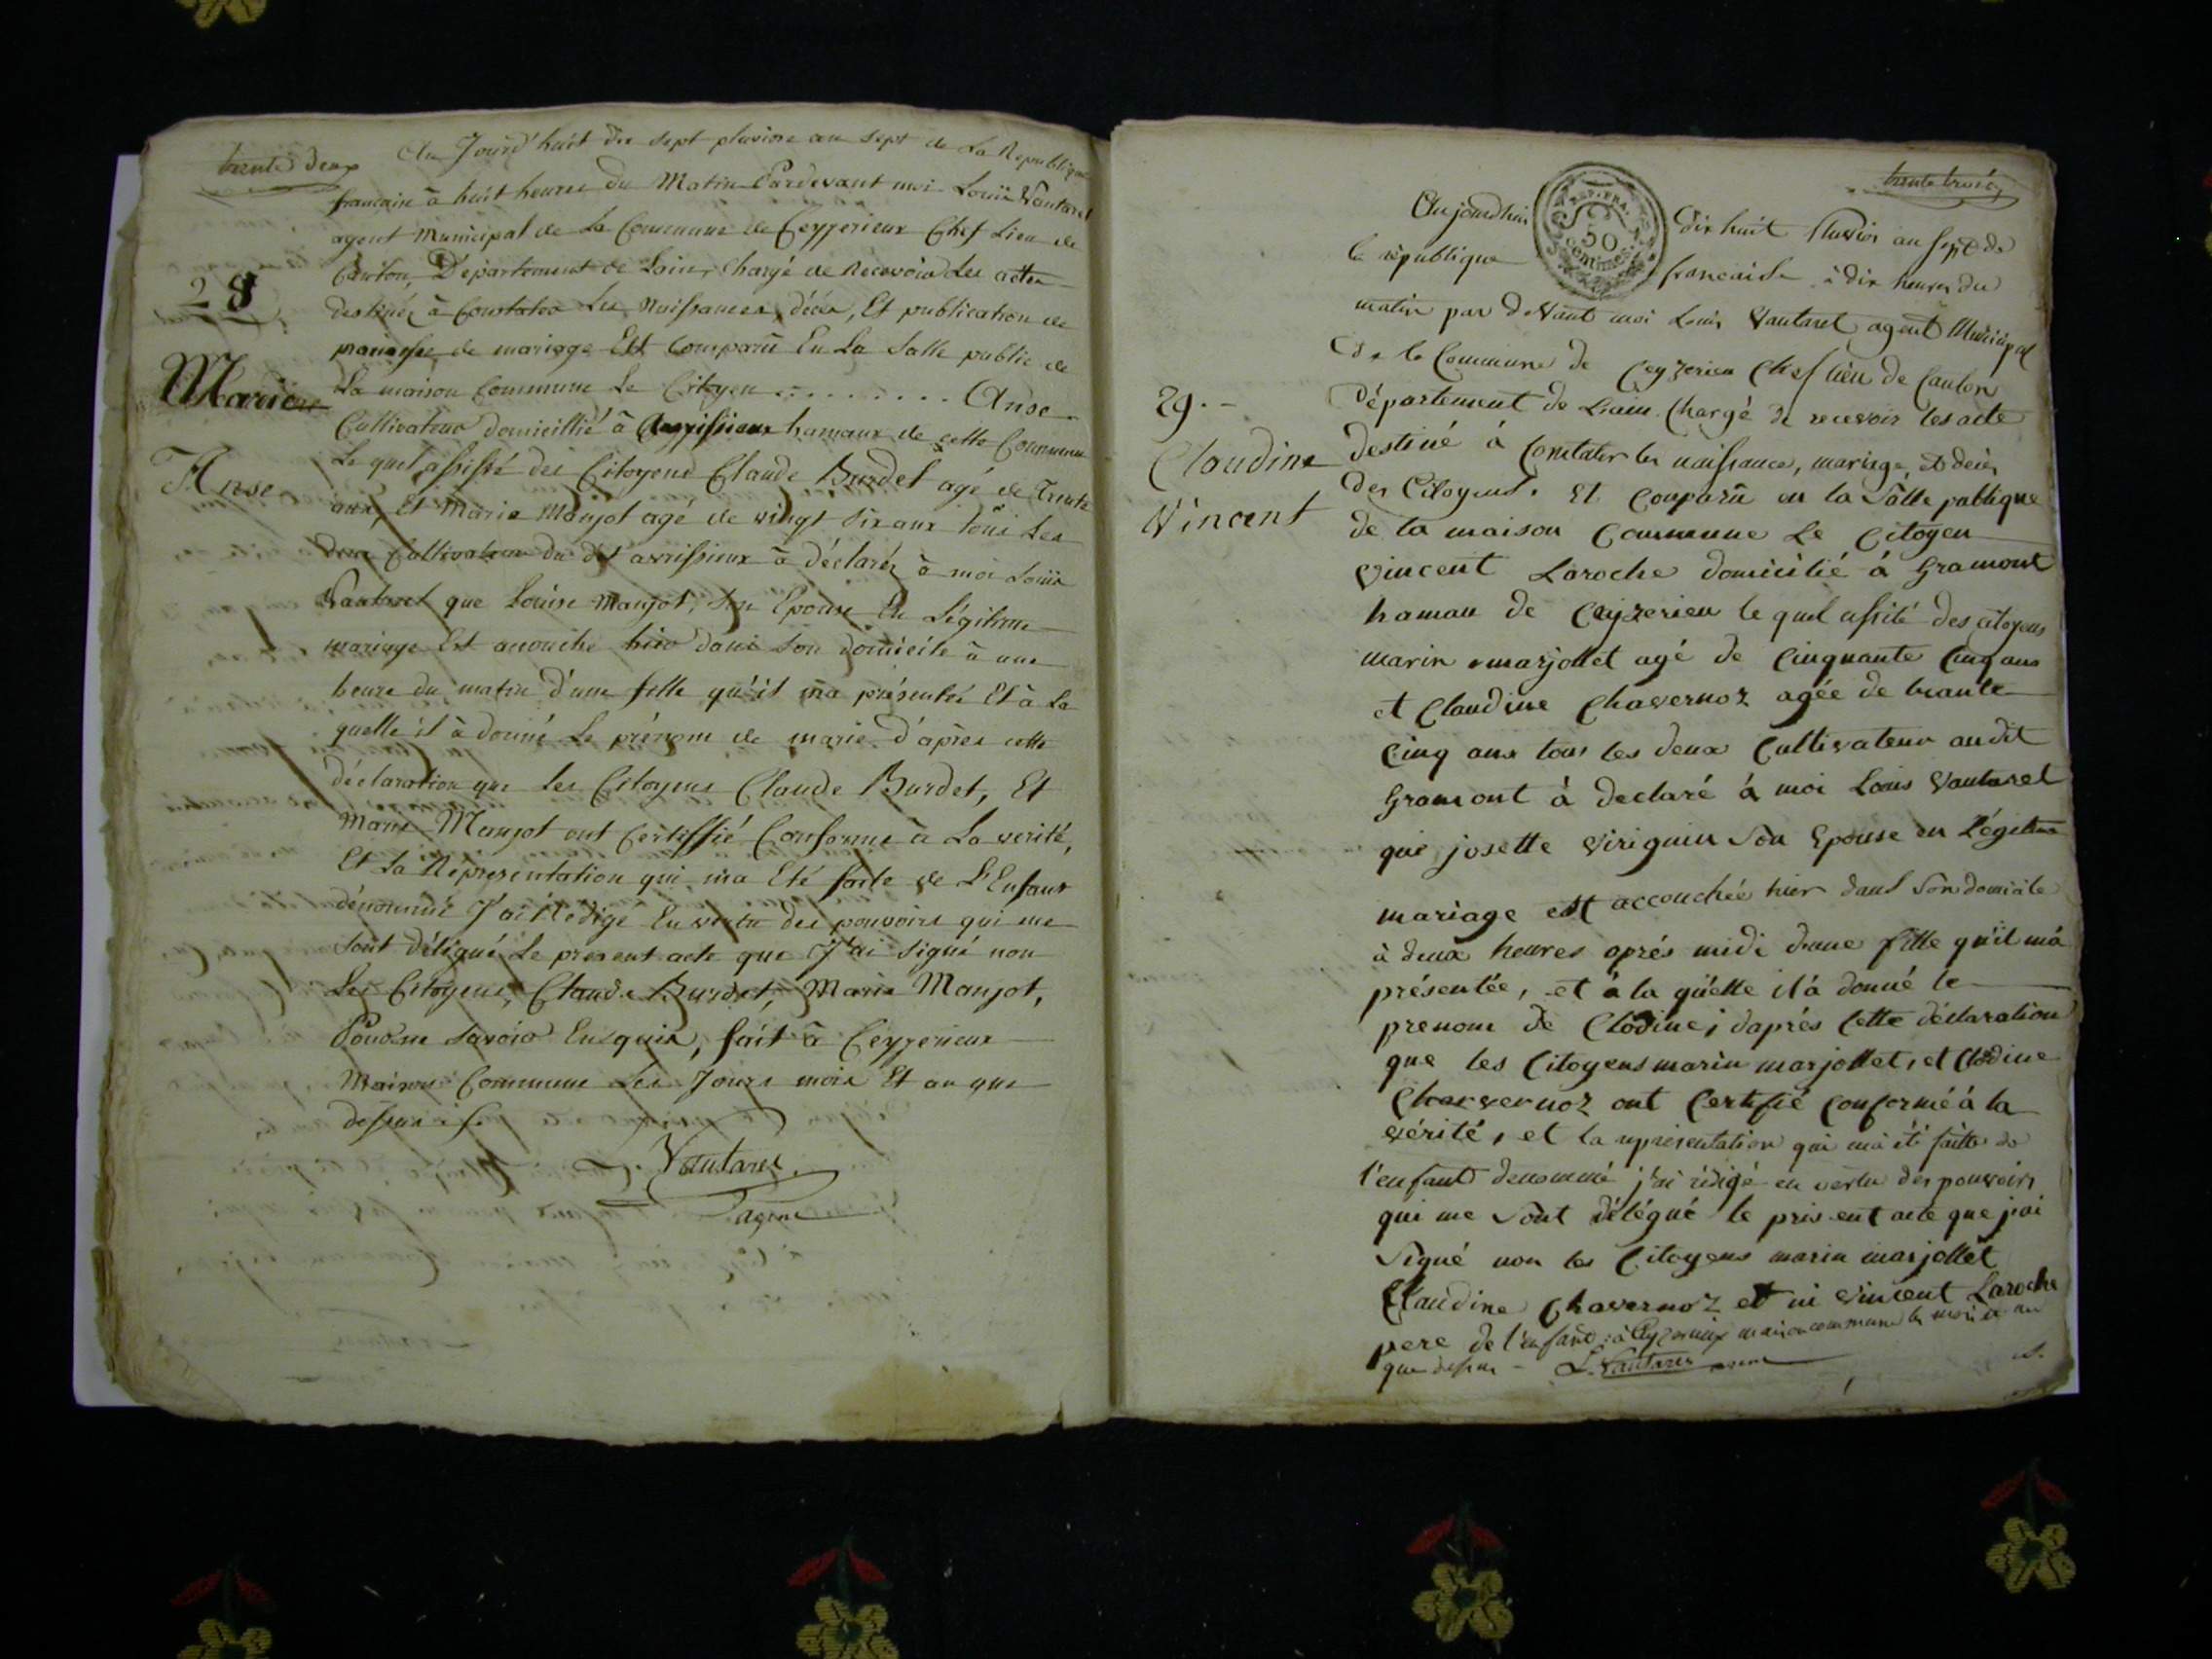 trente deux
Au Jourd'huit dix sept pluviose an sept de La Republique
francaise à huit heures du Matin Pardevant moi Louis Vautaret
agent Municipal de La Commune de Ceyzerieux Chef Lieu de
Canton, Département de Lain, Chargé de Recevoir Les actes
destinés à Constater Les Naissances, décès, Et publication de
promesse de mariage Est Comparü En La Salle public de
La maison Commune Le Citoyen ......... Anse
Cultivateur domicillié à Avrissieux hamaux de cette Commune
Le quel assisté des Citoyens Claude Burdet agé de Trente
ans, Et Marie Manjot agé de vingt six ans tous Les
deux Cultivateur du dit avrissieux à déclaré à moi Louis
Vautaret que Louise Manjot, son Epouse En Légitime
mariage Est acouchée hier dans son domicile à une
heure du matin d'une fille qu'il m'a présentée Et à La
quelle il à donné Le prénom de marie d'après cette
déclaration que les Citoyens Claude Burdet, Et
Marie Manjot ont Certiffié Conforme à La verité,
Et La Representation qui m'a Eté faite de L'Enfant
dénommé J'ai Rédigé En vertu des pouvoirs qui me
sont Délégué Le present acte que J'ai signé non
Les Citoyens, Claude Burdet, Marie Manjot,
Pour ne savoir Enquis, fait à Ceyzerieux
Maison Commune Les Jours mois Et an que
dessus
L. Vautaret
agent
28
Marie
Anse
trente trois
REP. FRA.
50
Centimes
Aujourdhui dix huit Pluvios an Sept de
la république francaise à dix heures du
matin par devant moi Louis Vautaret agent Municipal
De la Commune de Ceyzerieu Chef lieu de Canton
Département de Lain. Chargé de recevoir les acte
destiné à Constater les naissance, mariage, et decès
des Citoyens. Et Comparü en la Salle publique
de la maison Commune Le Citoyen
Vincent Laroche domicilié à Gramont
hamau de Ceyzerieu le quel assité des citoyens
marin marjollet agé de Cinquante Cinq ans
et Claudine Chavernoz agée de trante
Cinq ans tous les deux Cultivateur audit
Gramont à declaré à moi Louis Vautaret
que josette Viriguin Son Epouse en Légitime
mariage est accouchée hier dans Son domicile
à deux heures après midi d'une fille qu'il m'à
présentée, et à la quelle il à donné le
prenom de Clodine; daprès Cette déclaration
que les Citoyens marin marjollet, et Clodine
Chavernoz ont Certifié Conformé à la
vérité, et la representation qui m'a été faitte de
l'enfant denommé j'ai rédigé en vertu des pouvoirs
qui me Sont délégué le present acte que j'ai
Signé non les Citoyens marin marjollet
Claudine Chavernoz et ni Vincent Laroche
pere de l'enfant à Ceyzerieux maison commune les mois et an
que dessus - L. Vautaret agent
29.-
Claudine
Vincent